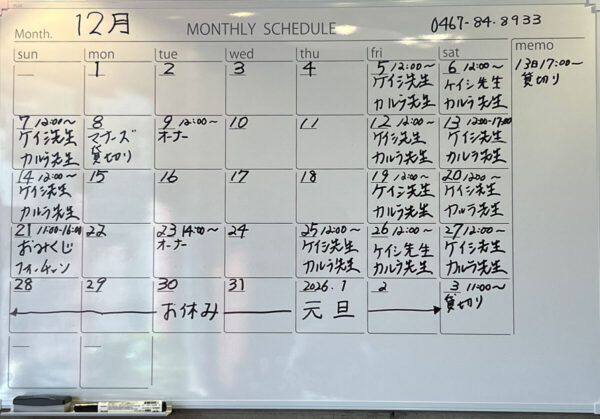 Month. 12月 MONTHLY SCHEDULE 0467-84-8933
sun mon tue wed thu fri sat memo
1 2 3 4 5 12:00~ 6 12:00~ 13日17:00~
ケイシ先生 ケイシ先生 貸切り
カルラ先生 カルラ先生
7 12:00~ 8 9 12:00~ 10 11 12 12:00~ 13 12:00-17:00
ケイシ先生 マナーズ オーナー ケイシ先生 ケイシ先生
カルラ先生 貸切り カルラ先生 カルラ先生
14 12:00~ 15 16 17 18 19 12:00~ 20 12:00~
ケイシ先生 ケイシ先生 ケイシ先生
カルラ先生 カルラ先生 カルラ先生
21 11:00-16:00 22 23 14:00~ 24 25 12:00~ 26 12:00~ 27 12:00~
おみくじ オーナー ケイシ先生 ケイシ先生 ケイシ先生
カルラ先生 カルラ先生 カルラ先生
28 29 30 31 2026.1 2 3 11:00~
お休み 元旦 貸切り